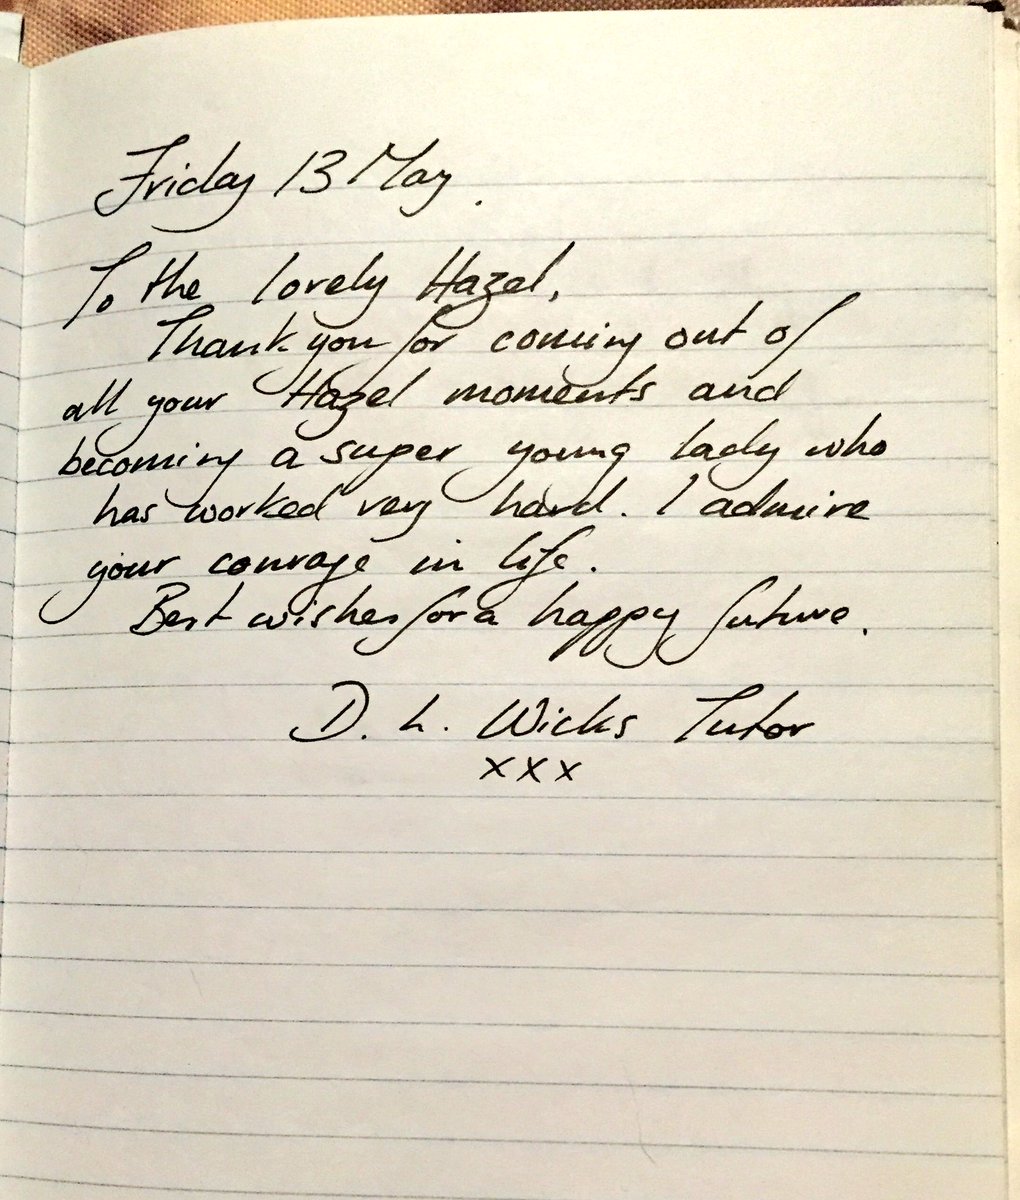 Friday 13 May.
To the lovely Hazel,
Thank you for coming out of
all your Hazel moments and
becoming a super young lady who
has worked very hard. I admire
your courage in life.
Best wishes for a happy future.
D. L. Wicks Tutor
xxx